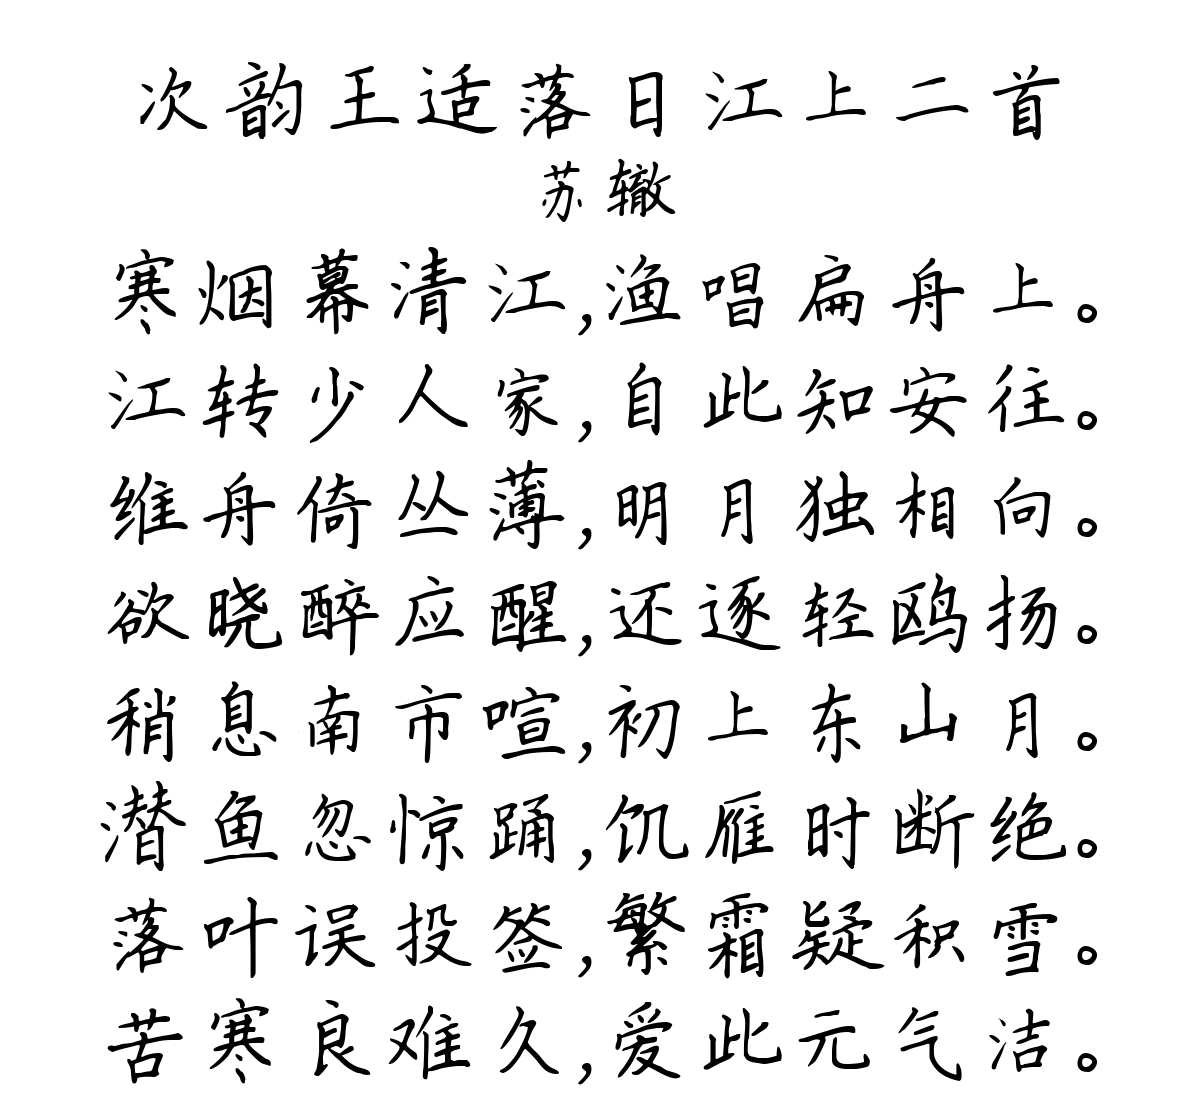 次韵王适落日江上二首
苏辙
寒烟幕清江,渔唱扁舟上。
江转少人家,自此知安往。
维舟倚丛薄,明月独相向。
欲晓醉应醒,还逐轻鸥扬。
稍息南市喧,初上东山月。
潜鱼忽惊踊,饥雁时断绝。
落叶误投签,繁霜疑积雪。
苦寒良难久,爱此元气洁。